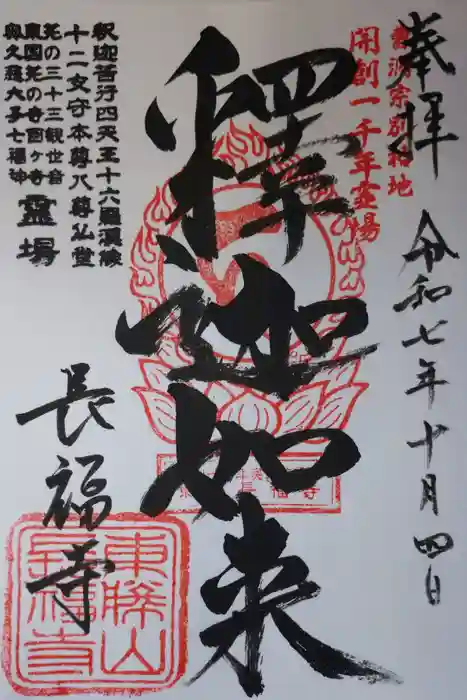 奉拝
令和七年十月四日
曹洞宗別格地
開創一千年霊場
釋迦如来
釈迦苦行四天王十六羅漢
十二支守本尊八尊仏堂
花の三十三観世音
東国花の寺百ヶ寺
奥久慈大子七福神
霊場
長福寺
東勝山
長福寺